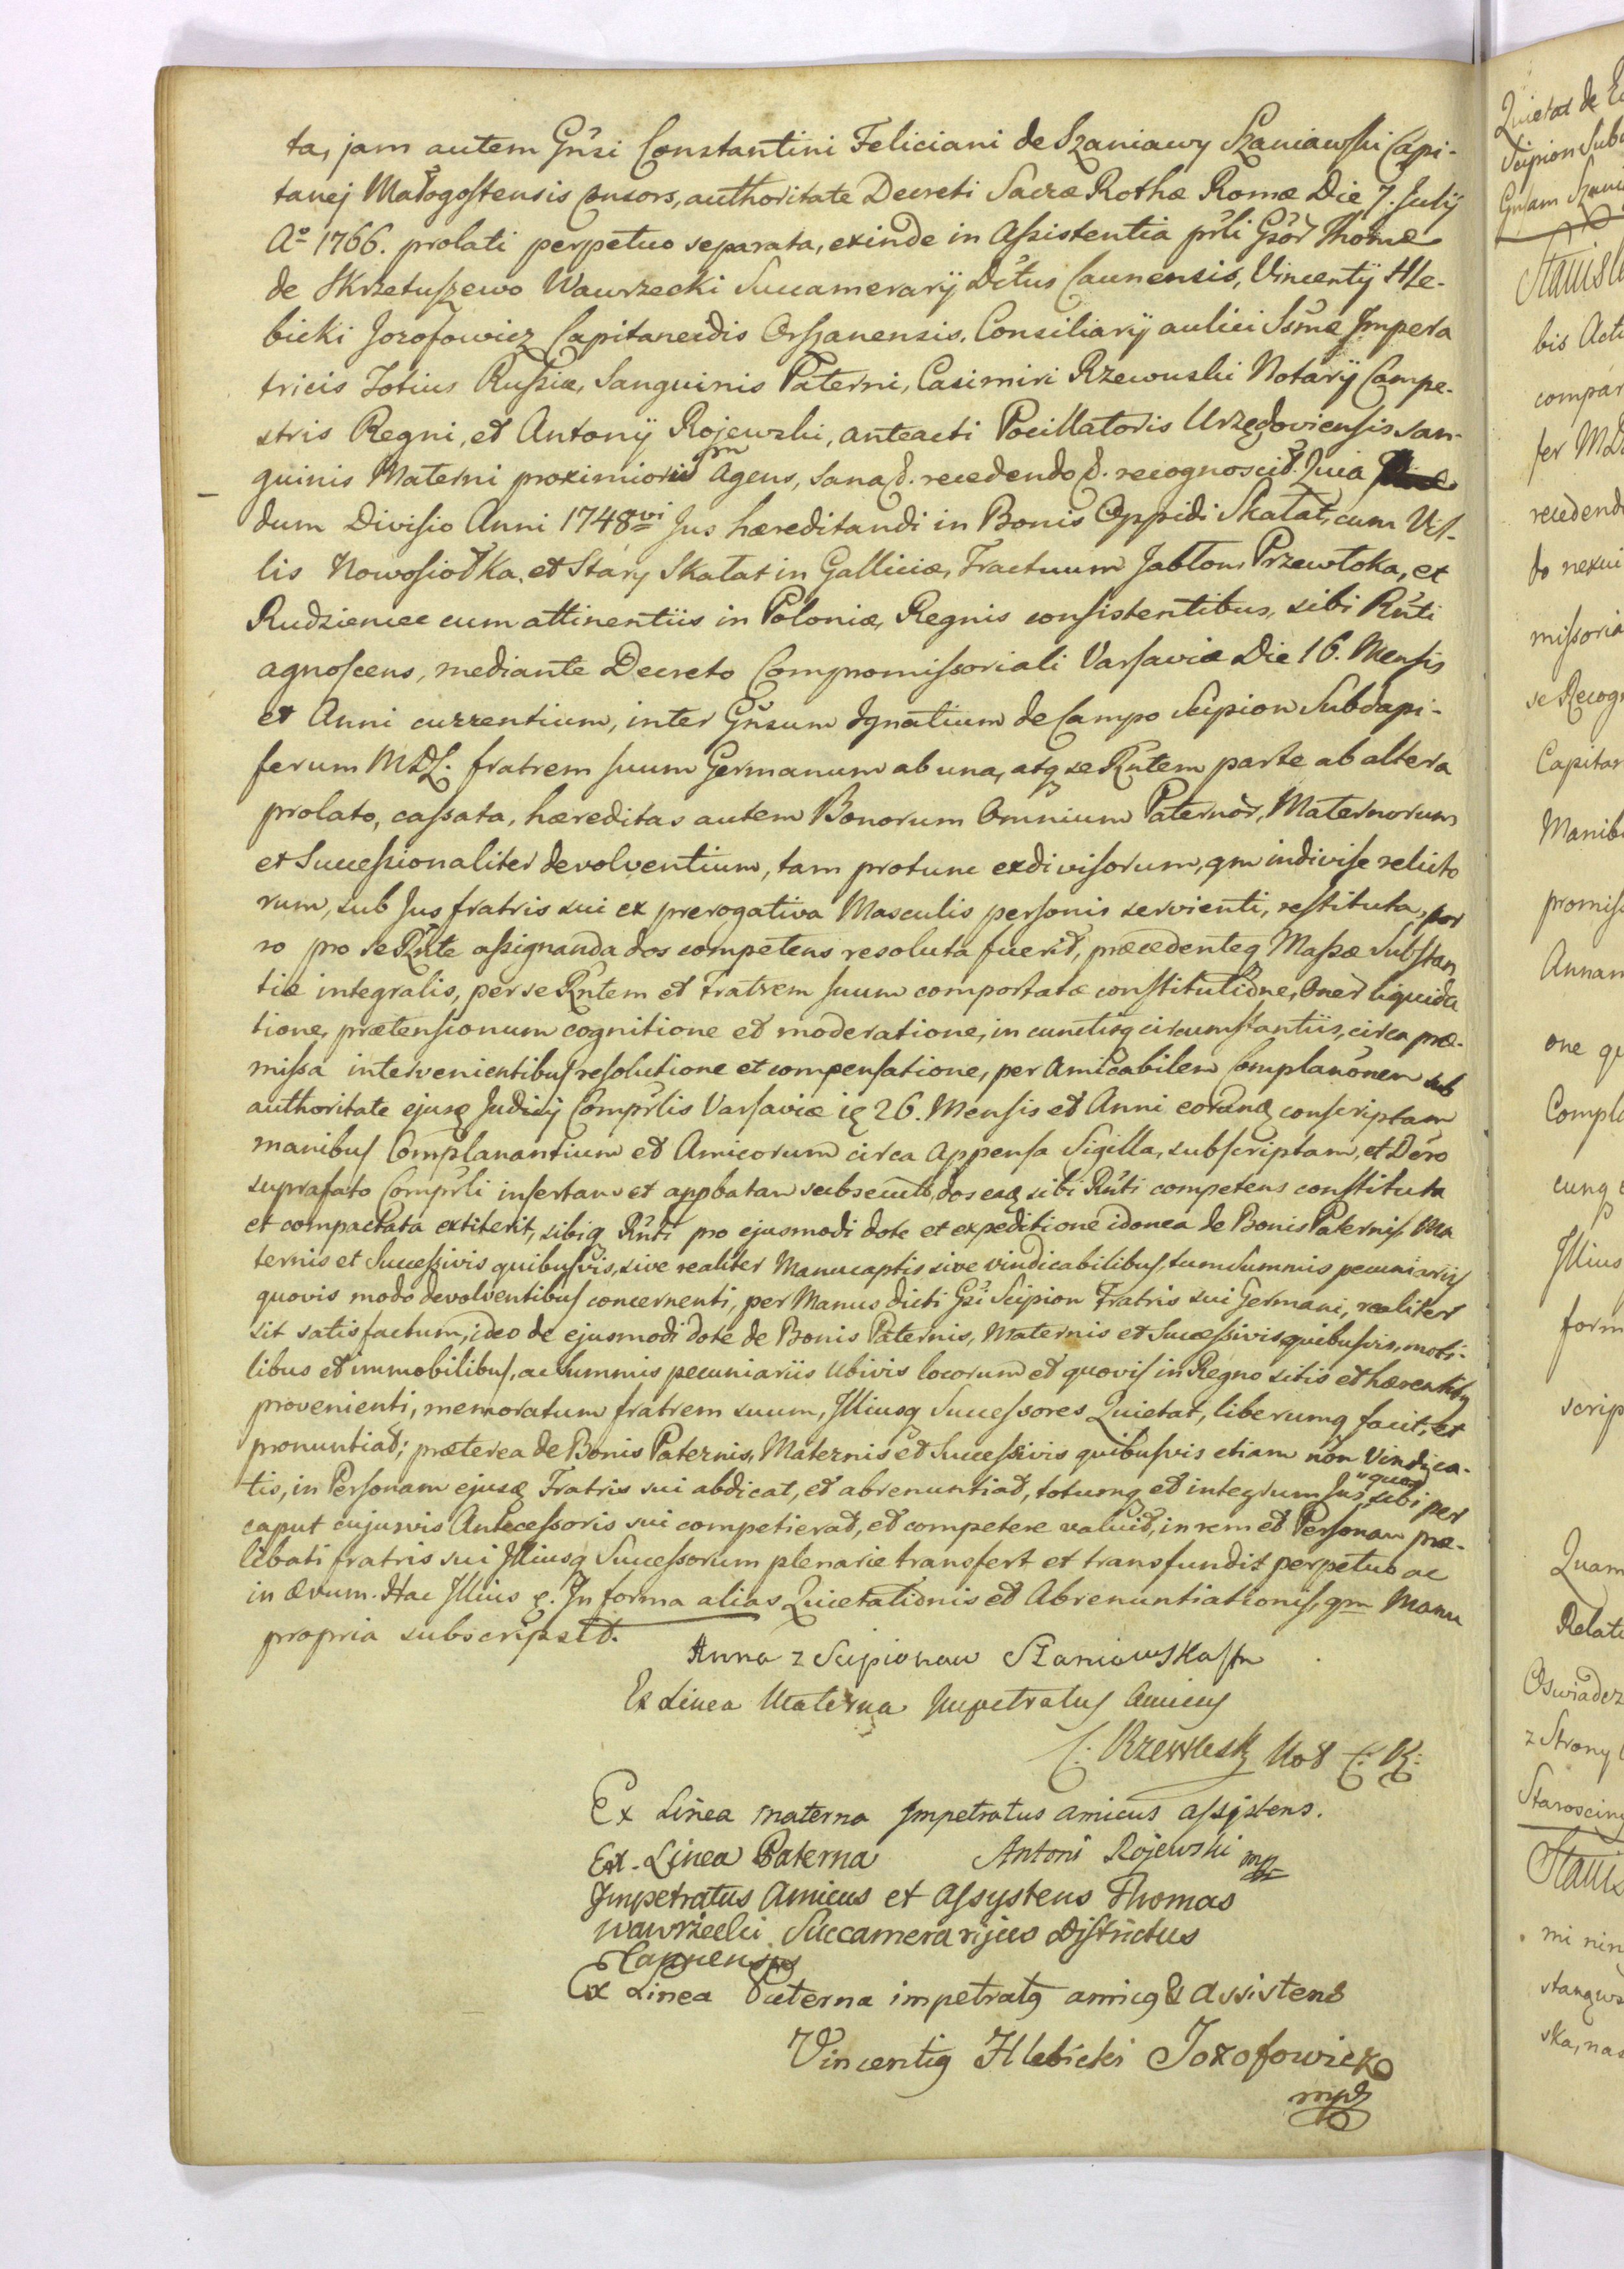 ta, jam autem Gnsi Constantini Feliciani de Szaniawy Szaniawski Capi-
tanej Małogostensis Consors, authoritate Decreti Sacræ Rothæ Romæ Die 7. Julij
Aº 1766. prolati perpetuo separata, exinde in Assistentia prli Gsor Thomæ
de Skrzetuszewo Wawrzecki Succamerarij Dctus Caunensis, Vincentij Hle-
bicki Jozofowicz Capitaneidis Orszanensis, Consiliarij aulici Ssmæ Impera
tricis Totius Russiæ, Sanguinis Paterni, Casimiri Rzewuski Notarij Campe-
stris Regni, et Antonij Rojewski, anteacti Pocillatoris Urzędoviensis san-
guinis Materni proximiorum Agens, sana &. recedendo &. recognoscit. Quia
dum Divisio Anni 1748vi Jus hæreditandi in Bonis Oppidi Skałat, cum Vil-
lis Nowosiołka, et Stary Skałat in Galliciæ, Tractuum Jabłoni Przewłoka, et
Rudzieniec cum attinentiis in Poloniæ, Regnis consistentibus, sibi Rnti
agnoscens, mediante Decreto Compromissoriali Varsaviæ Die 16. Mensis
et Anni currentium, inter Gnsum Ignatium de Campo Scipion Subdapi-
ferum MDL. fratrem suum Germanum ab una, atq se Rntem parte ab altera
prolato, cassata, hæreditas autem Bonorum Omnium Paternor, Maternorum
et Successionaliter devolventium, tam protunc exdivisorum, qm indivise relicto
rum, sub Jus fratris sui ex prerogativa Masculis personis servienti, restituta, por
ro pro se Rnte assignanda dos competens resoluta fuerit, præcedenteq Massæ Substan
tiæ integralis, per se Rntem et Fratrem suum comportatæ constitutione, Oner liquida
tione, prætensionum cognitione et moderatione, in cunctisq circumstantiis, circa præ-
missa intervenientibus resolutione et compensatione, per Amicabilem Complanonem sub
authoritate ejusq Judicij Comprlis Varsaviæ 26. Mensis et Anni eorunq conscriptam
manibus Complanantium et Amicorum circa Appensa Sigilla, subscriptam, et Dcro
suprafato Comprli insertam et appbatam subsecuto, dos eaq sibi Rnti competens constituta
et compactata extiterit, sibiq Rnti pro ejusmodi dote et expeditione idonea de Bonis Paternis Ma
ternis et Successivis quibusvis, sive realiter Manucaptis sive vindicabilibus, tum Summis pecuniariis
quovis modo devolventibus concernenti, per Manus dicti Gsi Scipion Fratris sui Germani, realiter
sit satisfactum, ideo de ejusmodi dote de Bonis Paternis, Maternis et Successivis quibusvis, mobi-
libus et immobilibus, ac Summis pecuniariis Ubivis locorum et quovis in Regno sitis et hærentibq
provenienti, memoratum fratrem suum, Illiusq Successores Quietat, liberumq facit, et
pronuntiat; præterea de Bonis Paternis, Maternis et Successivis quibusvis etiam non Vindica-
tis, in Personam ejusq Fratris sui abdicat, et abrenuntiat, totumq et integrum Jus, quod sibi per
caput cujusvis Antecessoris sui competierat, et competere valuit, in rem et Personam præ-
libati fratris sui Illiusq Successorum plenarie transfert et transfundit perpetuo ac
in ævum. Hac Illius &. In forma alias Quietationis et Abrenuntiationis, qm Manu
propria subscripsit.
Anna z Scipionow Szaniawska
Ex Linea Materna Impetratus Amicus
C. Rzewuski Not C: K:
Ex Linea materna Impetratus amicus assystens.
Antoni Rojewski mp
Ex Linea Paterna
Impetratus Amicus et Assystens Thomas
Wawrzecki Succamerarijus Districtus
Caunensis
Ex Linea Paterna impetratq amicq & Assistens
Vincentiq Hlebicki Jozofowicz
mp
Quietat de
Scipion
Gnsam
bis
compar
fer
recedend
to nexui
missoria
se Recogn
Capitan
Manib
promiss
Annam
one
Compla
cunq
Illius
form
scrip
Quam
Relat
Oswiadcz
z Strony
Staroscin
mi nin
ska, nas